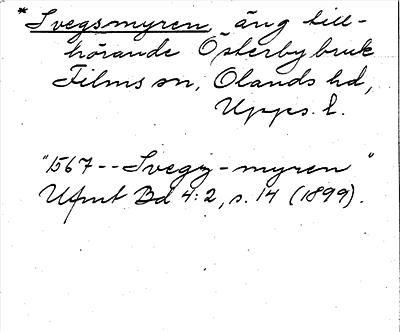 * Svegsmyren, äng till-
hörande Österby bruk
Films sn, Olands hd,
Upps. l.
"1567 -- Svegz-myren"
Ufmt Bd 4:2, s. 14 (1899).